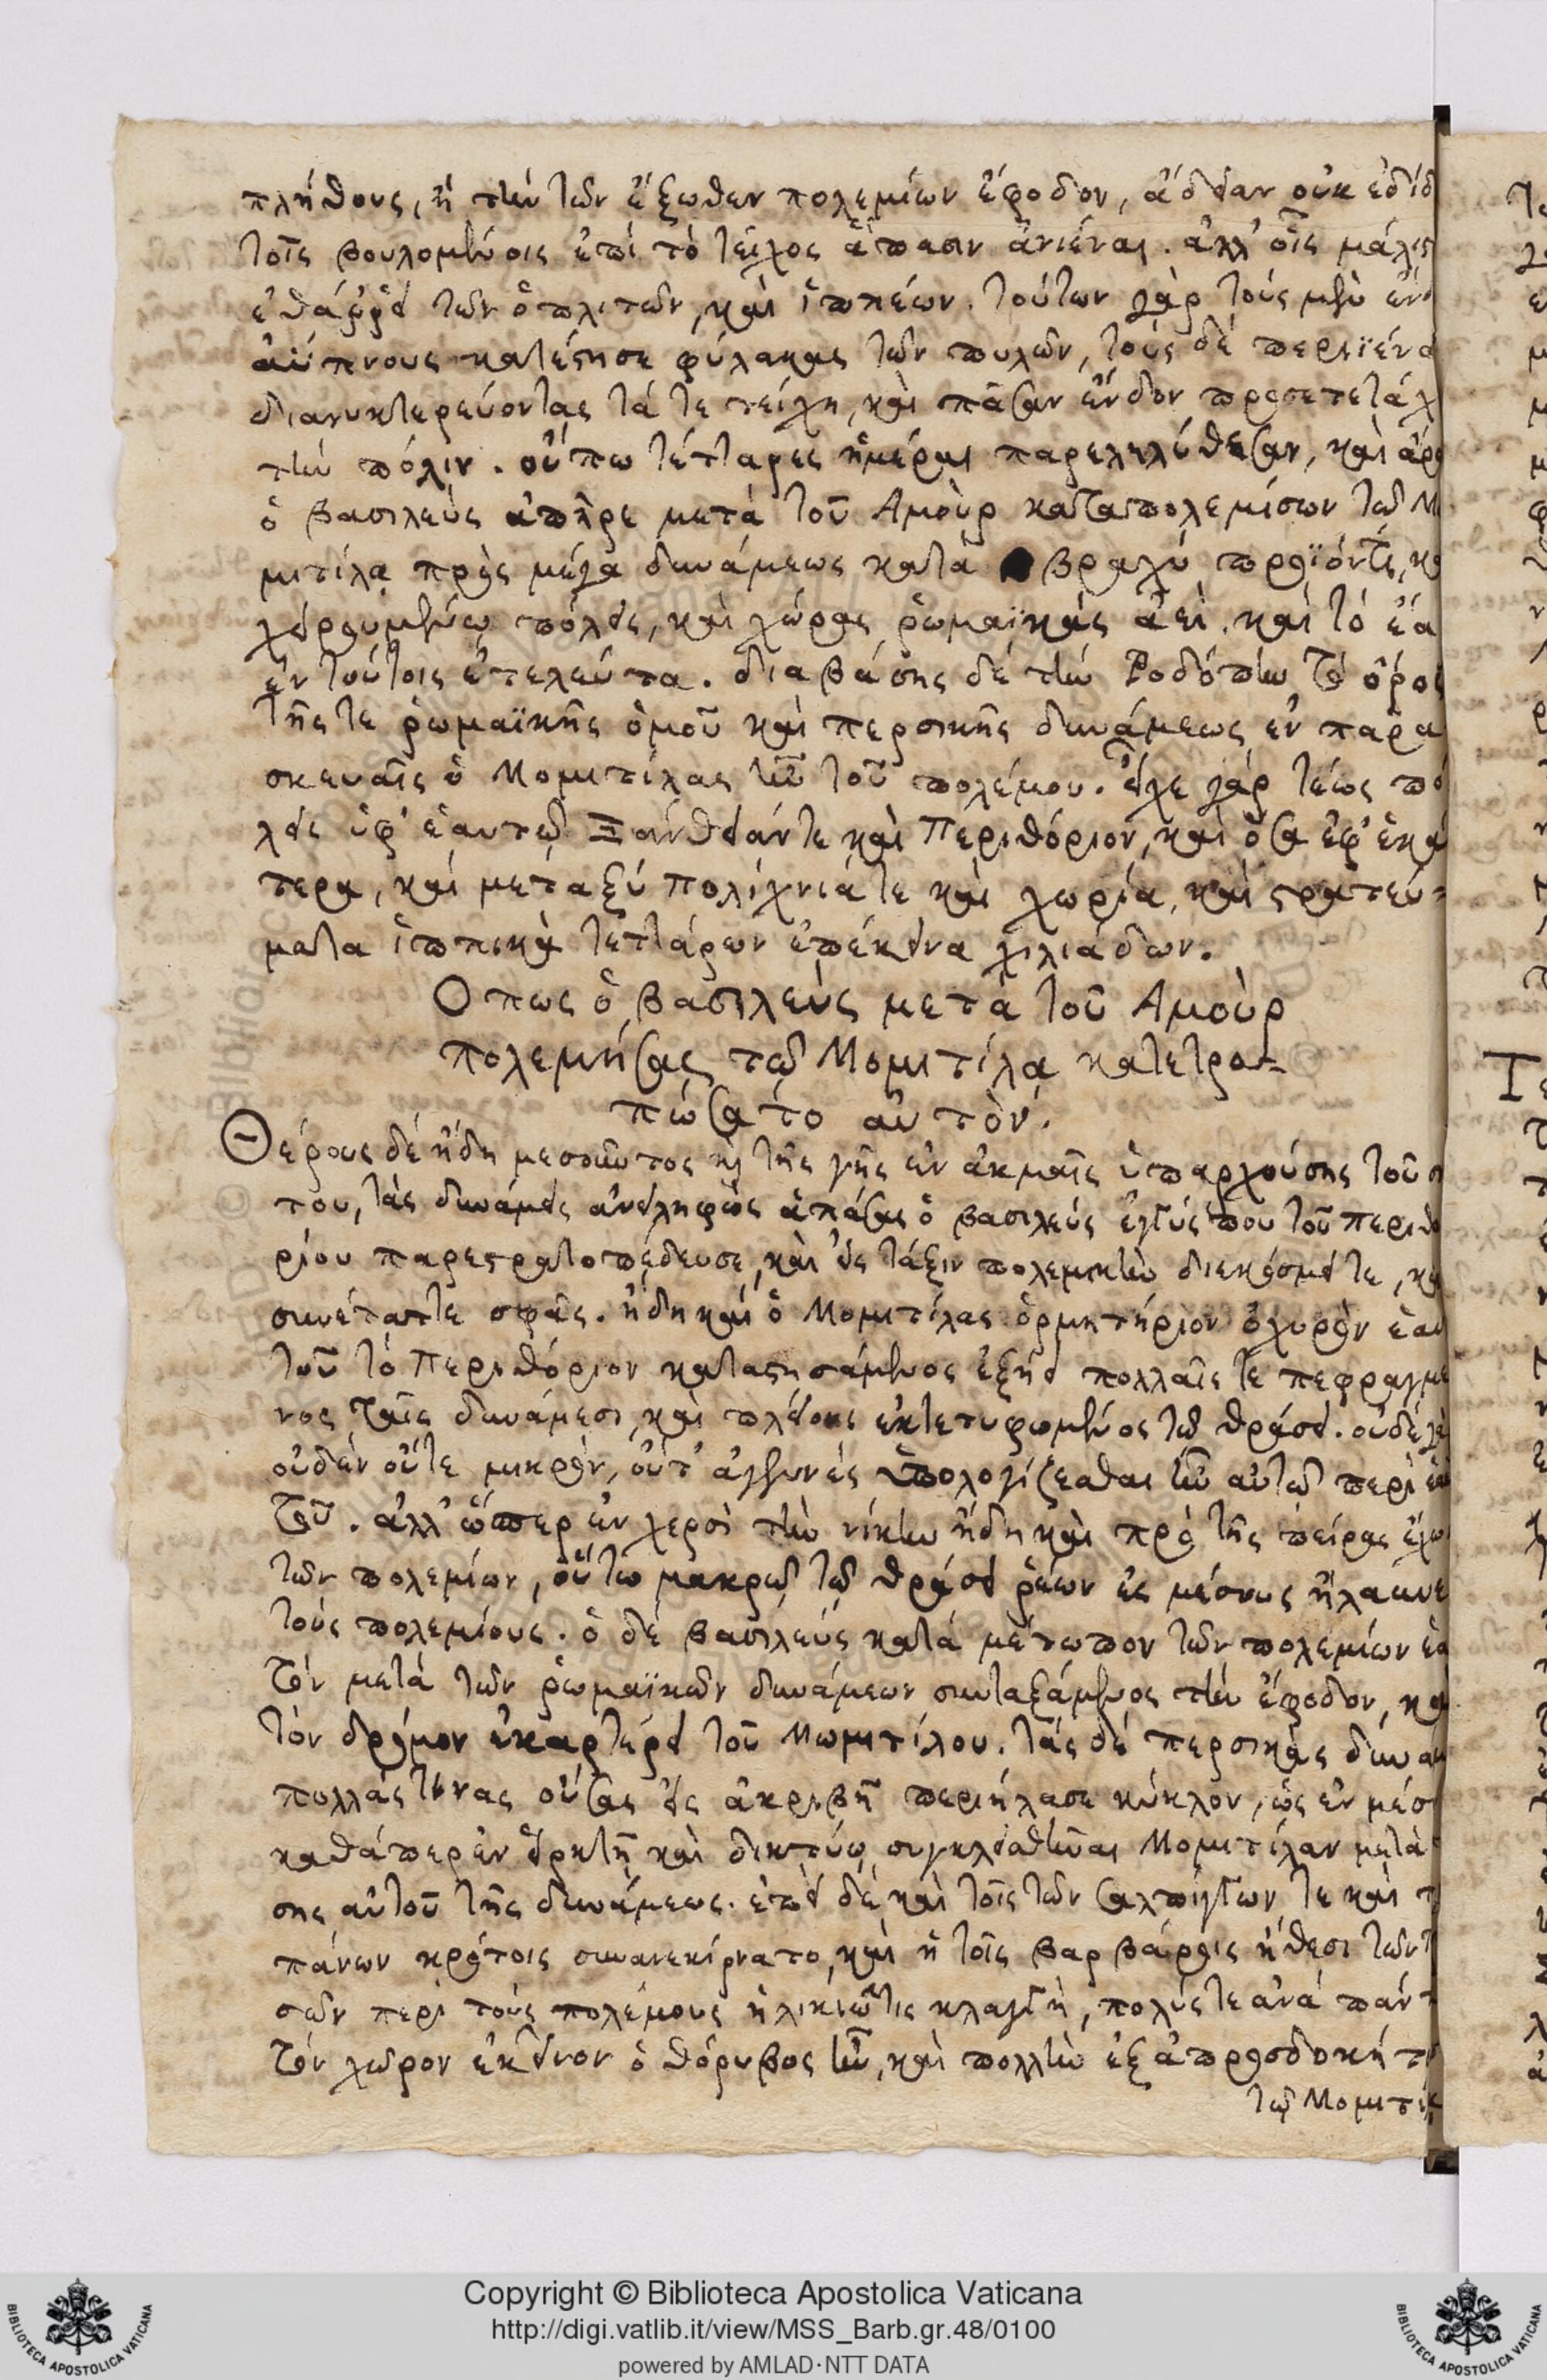 πλήθους, ἢ τὴν τῶν ἔξωθεν πολεμίων ἔφοδον, ἄδειαν οὐκ ἐδίδ
τοῖς βουλομένοις ἐπὶ τὸ τεῖχος ἅπασιν ἀνιέναι. ἀλλ' οἷς μάλισ
ἐθάῤῥει τῶν ὁπλιτῶν, καὶ ἱππέων. τούτων γὰρ τοὺς μὲν
ἀΰπνους κατέστησε φύλακας τῶν πυλῶν, τοὺς δὲ περιϊένα
διανυκτερεύοντας τά τε τείχη, καὶ πᾶσαν ἔνδον προσετετάχ
τὴν πόλιν. οὔπω τέτταρες ἡμέραι παρεληλύθεσαν, καὶ ἄρ
ὁ βασιλεὺς ἀπῆρε μετὰ τοῦ Αμοὺρ καταπολεμίσων τῷ Μ
μιτίλᾳ πρὸς μέγα δυνάμεως κατὰ βραχὺ προϊόντι, κα
χειρουμένῳ πόλεις, καὶ χώρας ῥωμαϊκάς ἀεὶ. καὶ τὸ ἔα
ἐν τούτοις ἐτελεύτα. διαβάσης δὲ τὴν Ῥοδόπην τὸ ὄρος
τῆς τε ῥωμαϊκῆς ὁμοῦ καὶ περσικῆς δυνάμεως ἐν παρα
σκευαῖς ὁ Μομιτίλας ἦν τοῦ πολέμου. εἶχε γὰρ τέως πό
λεις ὑφ' ἑαυτῷ Ξάνθειάν τε καὶ Περιθόριον, καὶ ὅσα ἐφ' ἑκά
τερα, καὶ μεταξὺ πολίχνιά τε καὶ χωρία, καὶ στρατεύ-
ματα ἱππικὰ τεττάρων ἐπέκεινα χιλιάδων.
Οπως ὁ βασιλεὺς μετὰ τοῦ Αμοὺρ
πολεμήσας τῷ Μομιτίλᾳ κατετρο-
πώσατο αὐτόν.
Θέρους δὲ ἤδη μεσοῦντος καὶ τῆς γῆς ἐν ἀκμαῖς ὑπαρχούσης τοῦ σ
του, τὰς δυνάμεις ἀνειληφὼς ἁπάσας ὁ βασιλεὺς ἐγγύς που τοῦ περιθ
ρίου παρεστρατοπέδευσε, καὶ εἰς τάξιν πολεμικὴν διεκόσμει τε, κα
συνέταττε σφᾶς. ἤδη καὶ ὁ Μομιτίλας ὁρμητήριον ὀχυρὸν ἑαυ
τοῦ τὸ Περιθόριον καταστησάμενος ἐξῄει πολλαῖς τε πεφραγμέ
νος ταῖς δυνάμεσι, καὶ πλείονι ἐκτετυφωμένος τῷ θράσει. οὐδὲ γὰ
οὐδὲν οὔτε μικρὸν, οὔτ' ἀγεννὲς ὑπολογίζεσθαι ἦν αὐτῷ περὶ ἑαυ
τοῦ. ἀλλ' ὥσπερ ἐν χερσὶ τὴν νίκην ἤδη καὶ πρὸ τῆς πείρας ἔχω
τῶν πολεμίων, οὕτω μακρῷ τῷ θράσει ῥέων ἐς μέσους ἤλαυνε
τοὺς πολεμίους. ὁ δὲ βασιλεὺς κατὰ μέτωπον τῶν πολεμίων ἑα
τὸν μετὰ τῶν ῥωμαϊκῶν δυνάμεων συνταξάμενος τὴν ἔφοδον, κα
τὸν δρόμον ἐκαρτέρει τοῦ Μωμιτίλου. τὰς δὲ περσικὰς δυνάμ
πολλάς τινας οὔσας εἰς ἀκριβῆ περιήλασε κύκλον, ὡς ἐν μέσ
καθάπερ ἐν εἱρκτῇ καὶ δικτύῳ συγκλεισθῆναι Μομιτίλαν μετὰ
σης αὐτοῦ τῆς δυνάμεως. ἐπεὶ δὲ καὶ τοῖς τῶν σαλπίγγων τε καὶ τ
πάνων κρότοις συνανεκίρνατο, καὶ ἡ τοῖς βαρβάροις ἤθεσι τῶν
σῶν περὶ τοὺς πολέμους ἡλικιῶτις κλαγγὴ, πολύς τε ἀνὰ πάντ
τὸν χῶρον ἐκεῖνον ὁ θόρυβος ἦν, καὶ πολλὴν ἐξ ἀπροσδοκήτ
τῷ Μομιτίλ
Copyright © Biblioteca Apostolica Vaticana
http://digi.vatlib.it/view/MSS_Barb.gr.48/0100
powered by AMLAD·NTT DATA
BIBLIOTECA APOSTOLICA VATICANA
BIBLIOTECA APOSTOLICA VATICANA